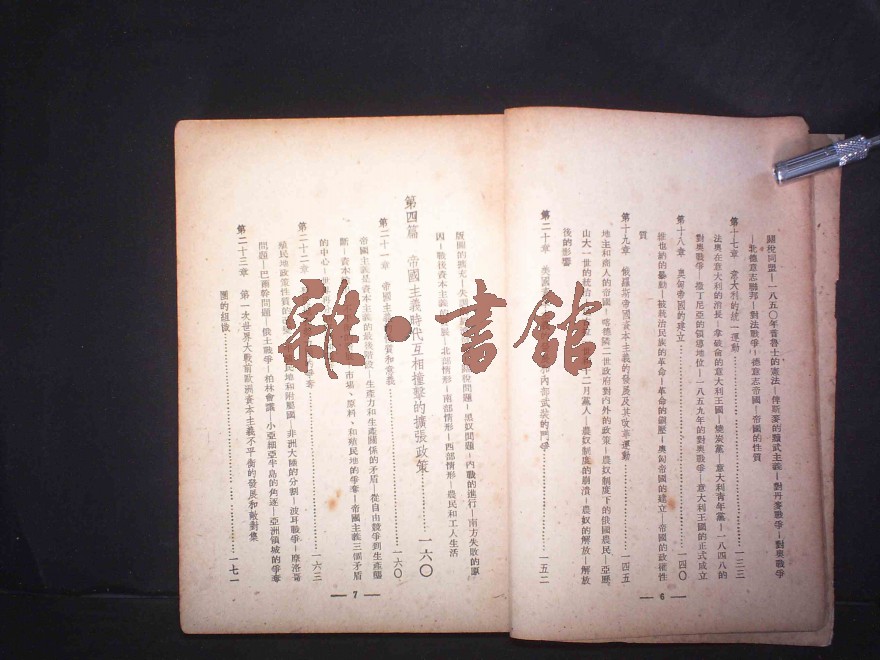 關稅同盟—一八五〇年普魯士的憲法—俾斯麥的黷武主義—對丹麥戰爭—對奧戰爭
—北德意志聯邦—對法戰爭—德意志帝國—帝國的性質
第十七章 意大利的統一運動 一三三
法奧在意大利的消長—拿破崙的意大利王國—燒炭黨—意大利青年黨—一八四八的
對奧戰爭—撒丁尼亞的領導地位—一八五九年的對奧戰爭—意大利王國的正式成立
第十八章 奧匈帝國的建立 一四〇
維也納的暴動—被統治民族的革命—革命的鎮壓—奧匈帝國的建立—帝國的政權性
質
第十九章 俄羅斯帝國資本主義的發展及其改革運動 一四五
地主和商人的帝國—喀德隣二世政府對內外的政策—農奴制度下的俄國農民—亞歷
山大一世的統治 十二月黨人—農奴制度的崩潰—農奴的解放—解放
後的影響
第二十章 美國 和內部武裝的鬥爭 一五二
— 6 —
版圖的擴充— 關稅問題—黑奴問題—內戰的進行—南方失敗的原
因—戰後資本主義 展—北部情形—南部情形—西部情形—農民和工人生活
第四篇 帝國主義時代互相撞擊的擴張政策 一六〇
第二十一章 帝國主 質和意義 一六〇
帝國主義是資本主義的最後階段—生產力和生產關係的矛盾—從自由競爭到生產壟
斷—資本 市場、原料、和殖民地的爭奪—帝國主義三個矛盾
的中心—世界
第二十二章 爭奪 一六三
殖民地政策性質的 民地和附屬國—非洲大陸的分割—波耳戰爭—摩洛哥
問題—巴爾幹問題—俄土戰爭—柏林會議—小亞細亞半島的角逐—亞洲領域的爭奪
第二十三章 第一次世界大戰前歐洲資本主義不平衡的發展和敵對集
團的組織 一七一
— 7 —
雜·書館